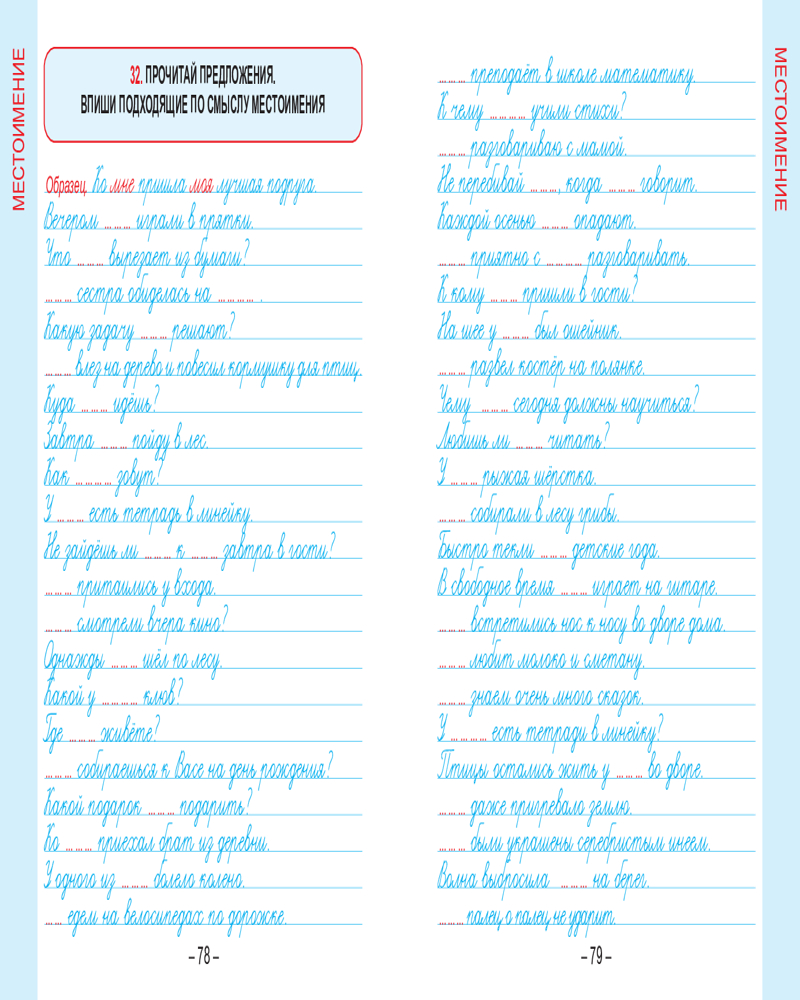 МЕСТОИМЕНИЕ
32. ПРОЧИТАЙ ПРЕДЛОЖЕНИЯ.
ВПИШИ ПОДХОДЯЩИЕ ПО СМЫСЛУ МЕСТОИМЕНИЯ
Образец. Ко мне пришла моя лучшая подруга.
Вечером ……… играли в прятки.
Что ……… вырезает из бумаги?
……… сестра обиделась на ………… .
Какую задачу ……… решают?
……… влез на дерево и повесил кормушку для птиц.
Куда ……… идёшь?
Завтра ……… пойду в лес.
Как ………… зовут?
У ……… есть тетрадь в линейку.
Не зайдёшь ли ……… к ……… завтра в гости?
……… притаились у входа.
……… смотрели вчера кино?
Однажды ……… шёл по лесу.
Какой у ………… клюв?
Где ……… живёте?
……… собираешься к Васе на день рождения?
Какой подарок ……… подарить?
Ко ……… приехал брат из деревни.
У одного из ……… болело колено.
…… едем на велосипедах по дорожке.
– 78 –
……… преподаёт в школе математику.
К чему ………… учили стихи?
……… разговариваю с мамой.
Не перебивай ………, когда ……… говорит.
Каждой осенью ……… опадают.
……… приятно с ………… разговаривать.
К кому ……… пришли в гости?
На шее у ……… был ошейник.
……… развел костёр на полянке.
Чему ……… сегодня должны научиться?
Любишь ли ……… читать?
У ……… рыжая шёрстка.
……… собирали в лесу грибы.
Быстро текли ……… детские года.
В свободное время ……… играет на гитаре.
……… встретились нос к носу во дворе дома.
……… любит молоко и сметану.
……… знаем очень много сказок.
У ………… есть тетради в линейку?
Птицы остались жить у ……… во дворе.
……… даже пригревало землю.
……… были украшены серебристым инеем.
Волна выбросила ……… на берег.
……… палец о палец не ударит.
– 79 –
МЕСТОИМЕНИЕ